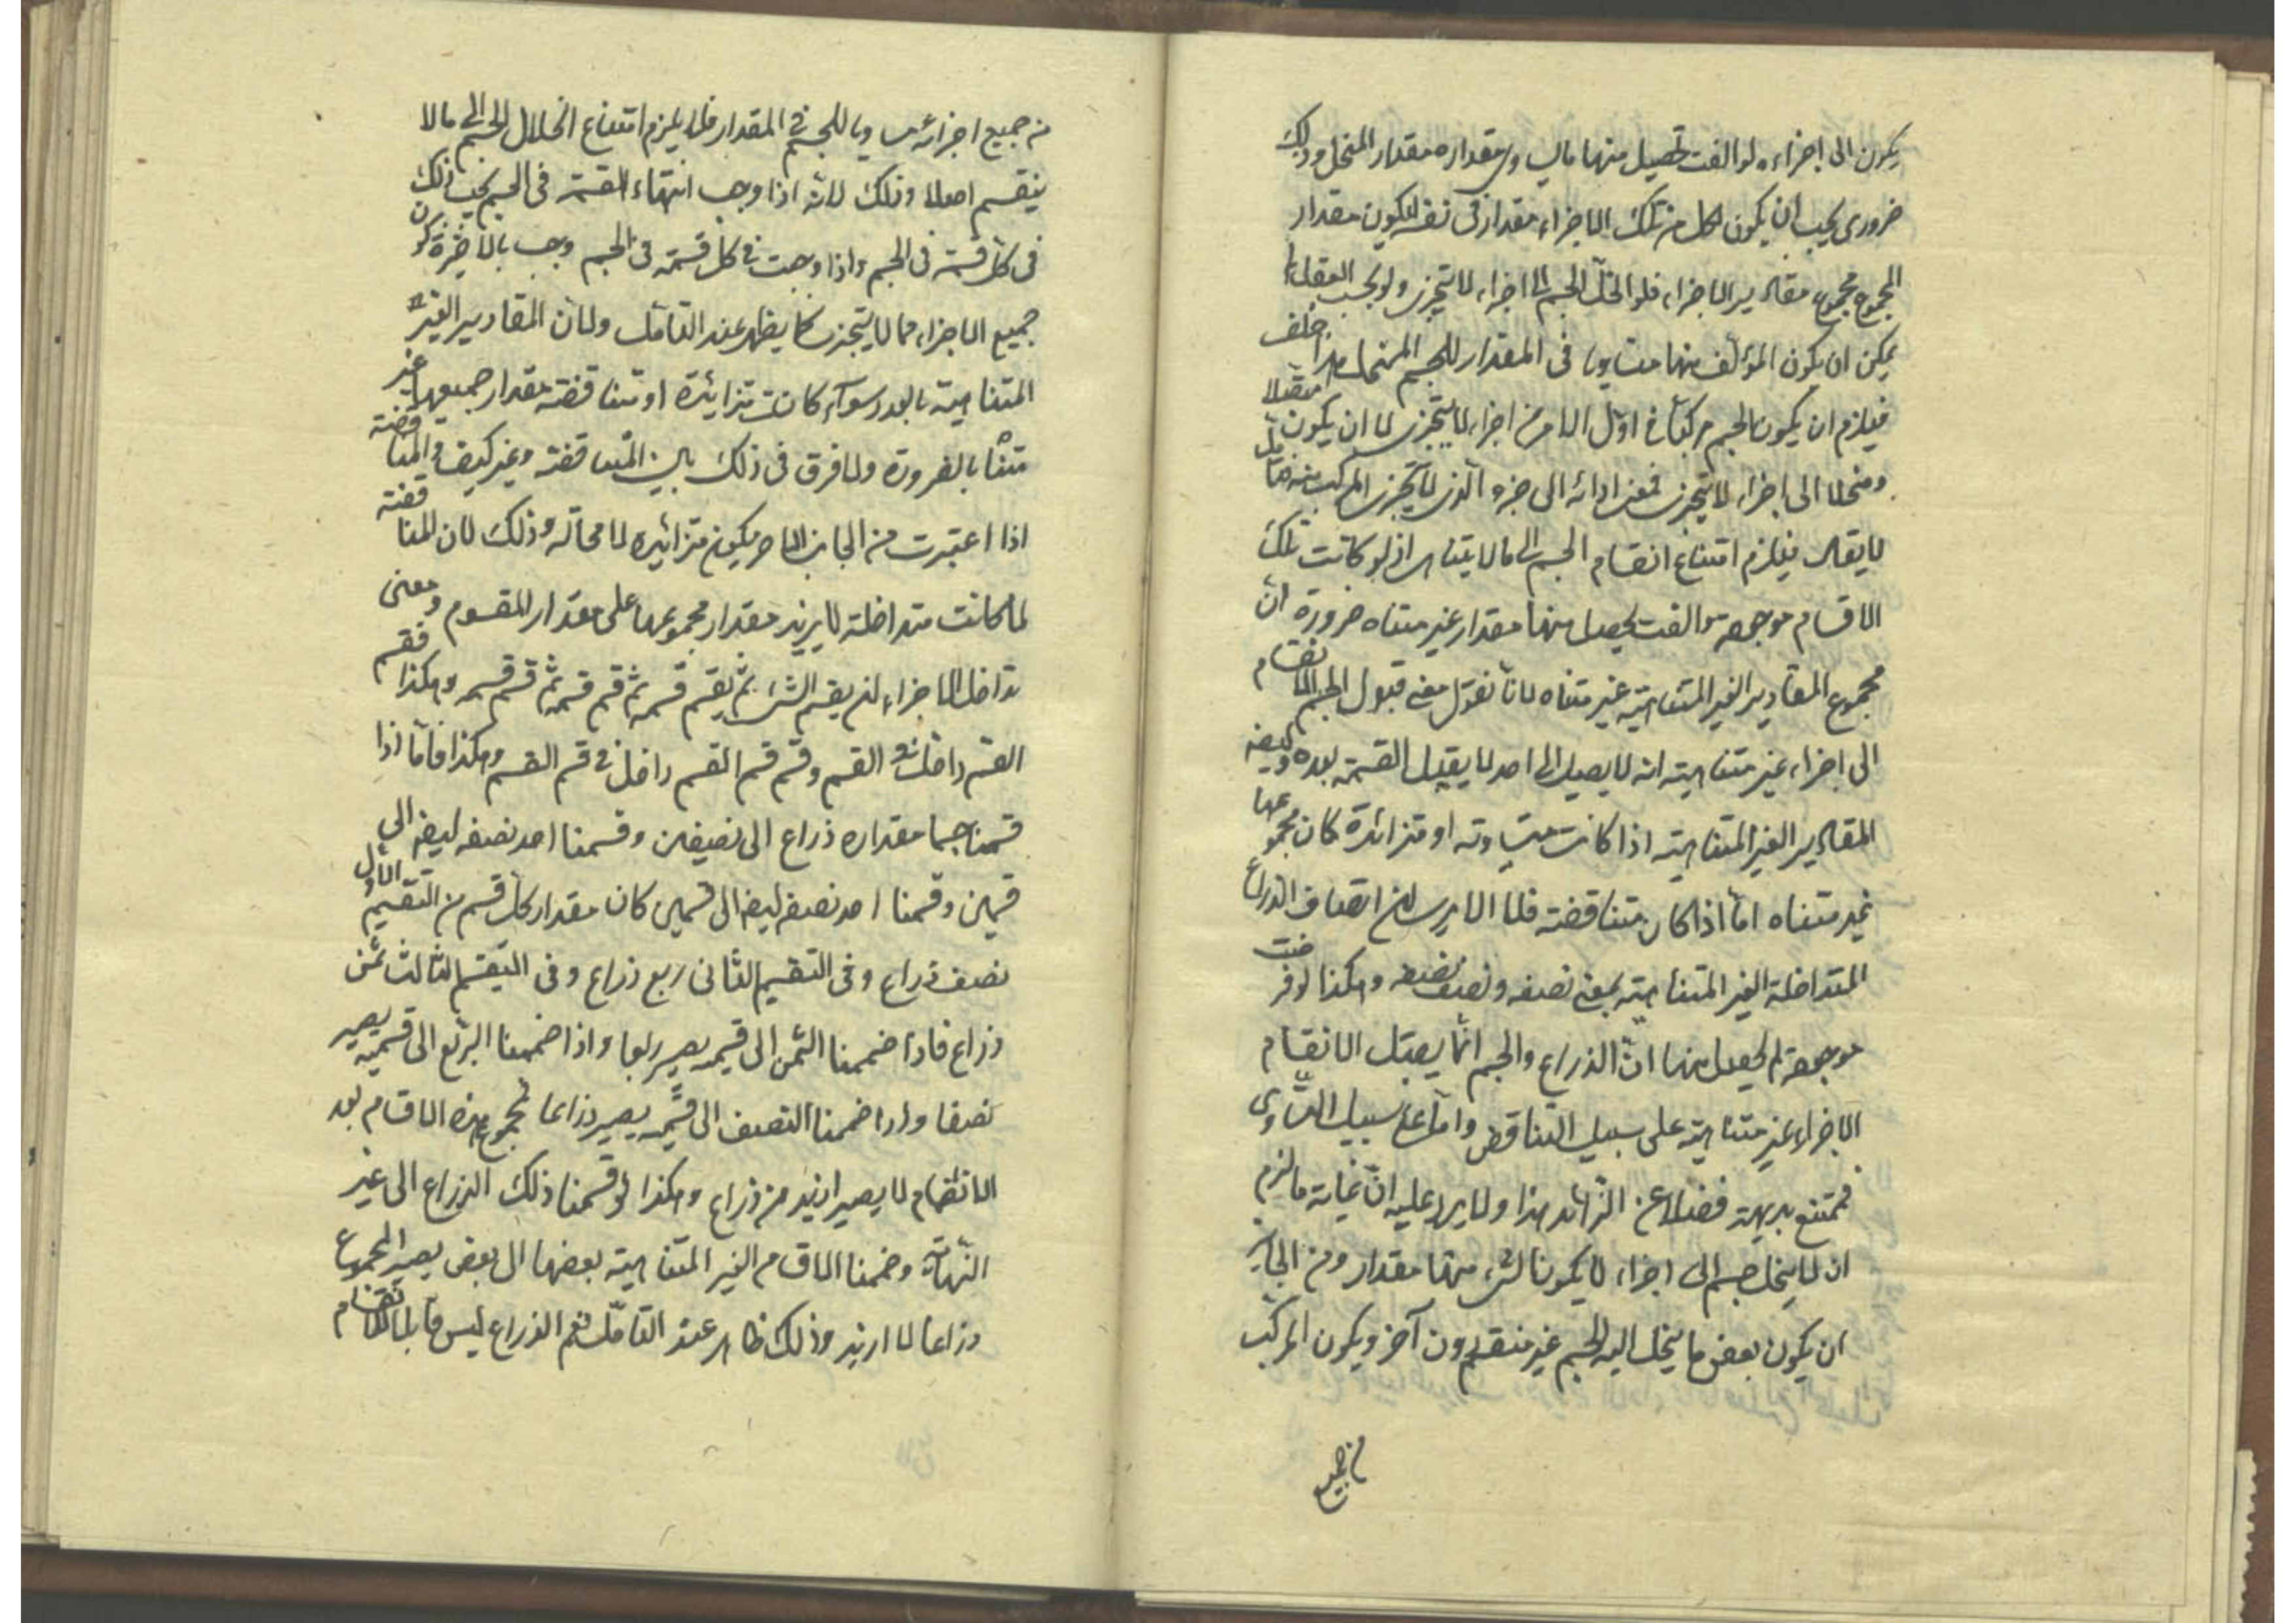 يكون الى اجزاء لو الفت تحصيل منها ما يساوى مقداره مقدار المنحل وذلك
ضرورى يجب ان يكون لكل من تلك الاجزاء مقدار فى نفسه ليكون مقدار
المجموع مجموع مقادير الاجزاء فلو انحل الجسم الى اجزاء لا تتجزى ولو بحسب العقل لم
يمكن ان يكون المؤلف منها متساويا فى المقدار للجسم المنحل هذا خلف
فيلزم ان يكون الجسم مركبا فى اول الامر من اجزاء لا تتجزى لا ان يكون متصلا
ومنحلا الى اجزاء لا تتجزى فمعنى ادائه الى جزء الذى لا يتجزى المركب منه
لا يقال فيلزم امتناع انقسام الجسم الى ما لا يتناهى اذ لو كانت تلك
الاقسام موجودة والفت يحصل منها مقدار غير متناه ضرورة ان
مجموع المقادير الغير المتناهية غير متناه لانا نقول معنى قبول الجسم الانقسام
الى اجزاء غير متناهية انه لا يصل الى احد لا يقبل القسمة بعده وايضا
المقادير الغير المتناهية اذا كانت متساوية او متزائدة كان مجموعها
غير متناه اما اذا كان متناقضة فلا الا يرى ان انصاف الذراع
المتداخلة الغير المتناهية بمعنى نصفه ونصف نصفه وهكذا لو فرضت
موجودة لم يحصل منها الا الذراع والجسم انما يقبل الانقسام
الاجزاء غير متناهية على سبيل التناقض واما على سبيل التساوى
فممتنع بديهة فضلا عن الزائد هذا ولا يرد عليه ان غاية ما لزم
ان لا ينحل جسم الى اجزاء لا يكون لشىء منها مقدار ومن الجائز
ان يكون بعض ما ينحل اليه الجسم غير منقسم دون آخر ويكون المركب
من جميع
من جميع اجزائه مساويا للجسم فى المقدار فلا يلزم امتناع انحلال الجسم الى ما لا
ينقسم اصلا وذلك لانه اذا وجب انتهاء القسمة فى الجسم يجب ذلك
فى كل قسمة فى الجسم واذا وجبت فى كل قسمة فى الجسم وجب بالاخرة كون
جميع الاجزاء مما لا يتجزى كما يظهر عند التامل ولان المقادير الغير
المتناهية بالعدد سواء كانت متزائدة او متناقضة مقدار جميعها غير
متناه بالضرورة ولا فرق فى ذلك بين المتناقضة وغير كيف والمتناقضة
اذا اعتبرت من الجانب الاخر يكون متزائدة لا محالة وذلك لان المتناقضة
لما كانت متداخلة لا يزيد مقدار مجموعها على مقدار المقسوم ومعنى
تداخل الاجزاء ان يقسم الشىء ثم يقسم قسمه ثم قسم قسمه ثم قسم قسم قسمه وهكذا فقسم
القسم داخل فى القسم وقسم قسم القسم داخل فى قسم القسم وهكذا فاما اذا
قسمنا جسما مقداره ذراع الى نصفين وقسمنا احد نصفه ايضا الى
قسمين وقسمنا احد نصفه ايضا الى قسمين كان مقدار كل قسم من التقسيم الاول
نصف ذراع وفى التقسيم الثانى ربع ذراع وفى التقسيم الثالث ثمن
ذراع فاذا ضممنا الثمن الى قسيمه يصير ربعا واذا ضممنا الربع الى قسيمه يصير
نصفا واذا ضممنا النصف الى قسيمه يصير ذراعا فمجموع هذه الاقسام بعد
الانضمام لا يصير ازيد من ذراع وهكذا لو قسمنا ذلك الذراع الى غير
النهاية وضممنا الاقسام الغير المتناهية بعضها الى بعض يصير المجموع
ذراعا لا ازيد وذلك ظاهر عند التامل فنعم الذراع ليس قابلا لانقسام